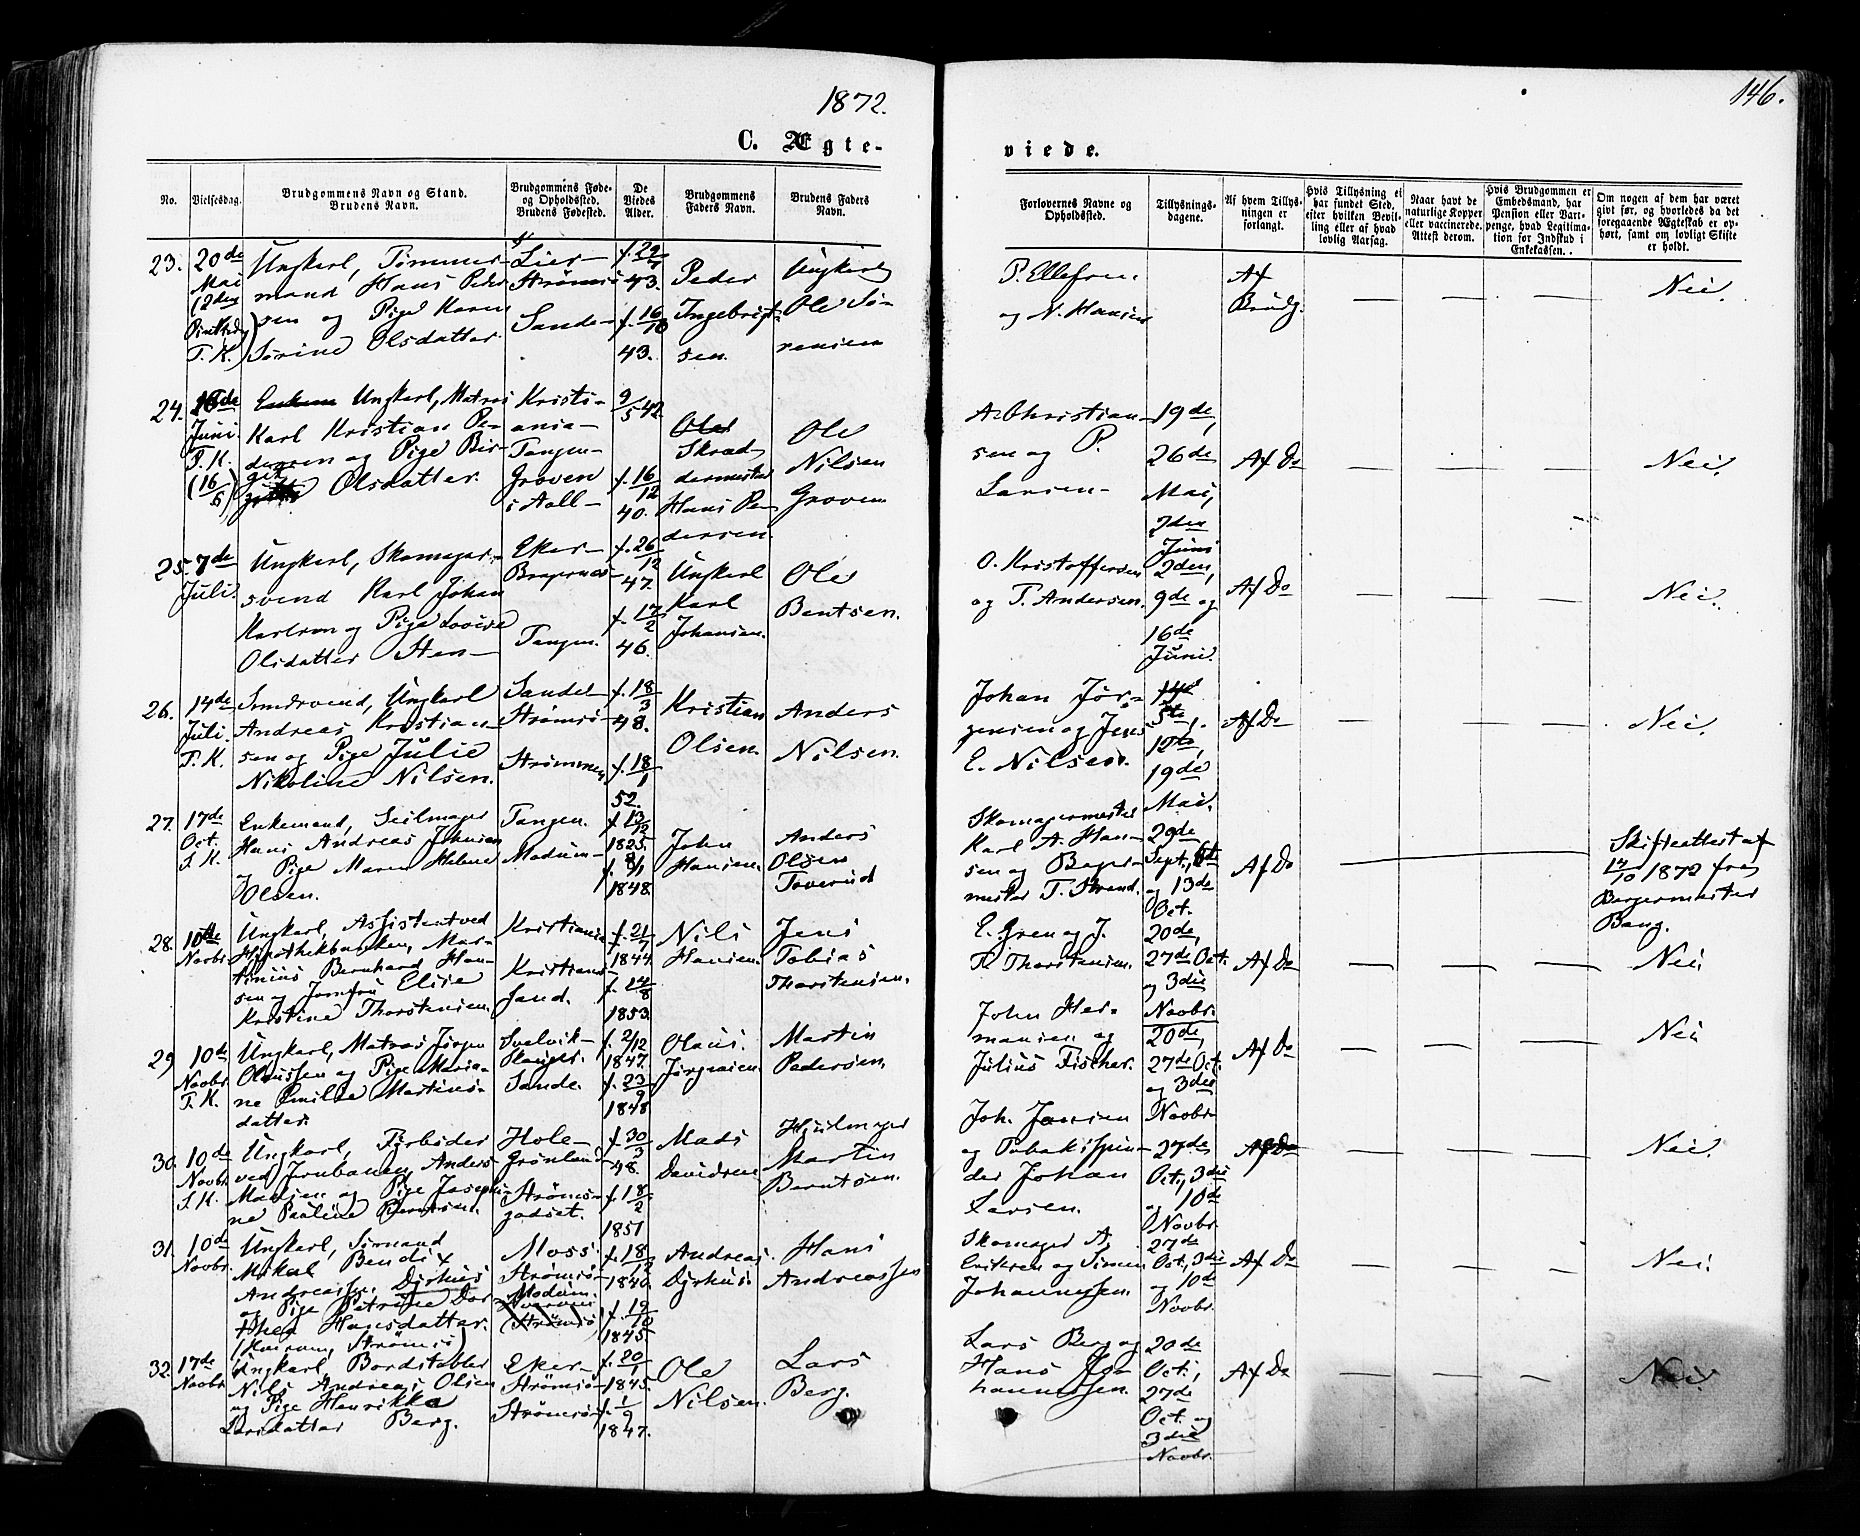 1872.
146.
C. Ægte-
viede.
No.
Vielsesdag.
Brudgommens Navn og Stand.
Brudens Navn.
Brudgommens Føde-
og Opholdssted.
Brudens Fødested.
De
Viedes
Alder.
Brudgommens
Faders Navn.
Brudens Faders
Navn.
Forlovernes Navne og
Opholdssted.
Tillysnings-
dagene.
Af hvem Tillys-
ningen er
forlangt.
Hvis Tillysning ei
har fundet Sted,
efter hvilken Bevil-
ling eller af hvad
lovlig Aarsag.
Naar havt de
naturlige Kopper
eller vaccinerede.
Attest derom.
Hvis Brudgommen er
Embedsmand, har
Pension eller Vart-
penge, hvad Legitima-
tion for Indskud i
Enkekassen.
Om nogen af dem har været
givt før, og hvorledes da det
foregaaende Ægteskab er op-
hørt, samt om lovligt Skifte
er holdt.
23.
20de
Mai
(2den
T. K.
Ungkarl, Tømmer-
mand Hans Peder-
sen og Pige Karen
Sørine Olsdatter.
Lier-
Strømsø
Sande-
f. 29/7
43.
f. 16/10
43.
Peder
Ingebrigt-
sen.
Ungkarl
Ole Sø-
rensen
P. Ellefsen
og N. Hansen
Af
Brudg.
— — —
Nei.
24.
Juni.
T. K.
(16/6)
Ungkarl, Matros
Karl Kristian Pe-
dersen og Pige Bir-
git Olsdatter.
Kristi-
ania-
Tangen-
Groven
i Aall-
9/5 42.
f. 16/12
40.
Skræd-
dermester
Hans Pe-
dersen.
Ole
Nilsen
Groven
A. Christian-
sen og P.
Larsen-
19de,
26de
Mai,
2den
Juni
Af Do
— — —
Nei.
25.
7de
Juli.
Ungkarl, Skomager-
svend Karl Johan
Karlsen og Pige Lovise
Olsdatter Sten-
Eker-
Bragernæs-
Tangen.
f. 26/12
47.
f. 17/2
46.
Ungkarl
Karl
Johansen.
Ole
Bentsen.
O. Kristoffersen
og T. Andersen.
2den,
9de og
16de
Juni.
Af Do
— — —
Nei.
26.
14de
Juli.
T. K.
Smedsvend, Ungkarl
Andreas Kristian-
sen og Pige Julie
Nikoline Nilsen.
Sande-
Strømsø-
Strømmen
f. 18/3
48.
f. 18/1
52.
Kristian
Olsen.
Anders
Nilsen.
Johan Jør-
gensen og Jens
E. Nilsen.
5te,
12te,
19de
Mai.
Af Do
— — —
Nei.
27.
17de
Oct.
T. K.
Enkemand, Seilmager
Hans Andreas Johnsen
og Pige Maren Helene
Olsen.
Tangen.
Modum-
f. 13/12
1825.
f. 8/1
1848.
John
Hansen.
Anders
Olsen
Toverud
Skomagermester
Karl A. Han-
sen og Bager-
mester T. Strand.
29de
Sept., 6te
og 13de
Oct.
Af Do
Skifteattest af
17/10 1872 fra
Borgermester
Bang.
28.
10de
Novbr.
Ungkarl, Assistent ved
Hypothekbanken, Mar-
tinius Bernhard Han-
sen og Jomfru Elise
Kristine Thorstensen.
Kristiania
Kristian-
sand.
f. 21/7
1844
f. 24/8
1853.
Nils
Hansen.
Jens
Tobias
Thorstensen.
E. Gren og J.
T. Thorstensen.
20de,
27de Oct.
og 3die
Novbr.
Af Do
— — —
Nei.
29
10de
Novbr.
T. K.
Ungkarl, Matros Jørgen
Olaussen og Pige Maria-
ne Emilie Martins-
datter.
Svelvik-
Sande.
f. 2/12
1847.
f. 23/9
1848
Olaus
Jørgensen
Martin
Pedersen.
John Her-
mansen og
Julius Fischer.
20de,
27de Oct.
og 3die
Novbr.
Af Do
— — —
Nei
30.
10de
Novbr.
T. K.
Ungkarl, Fyrbøder
ved Jernbanen, Anders
Madsen og Pige Josephi-
ne Pauline Berntsen.
Hole-
Grønland
Strøms-
godset.
f. 30/3
48.
f. 18/2
1851
Mads
Davidsen
Hjulmager
Martin
Berntsen.
Joh. Jansen
og Tobakspin-
der Johan
Larsen.
27de
Oct., 3die
og 10de
Novbr.
Af Do
— — —
Nei.
31.
10de
Novbr.
Ungkarl, Sømand
Mikal Bendix
Andreassen Dyrhus
og Pige Petrine Dor-
thea Hansdatter.
(Kværum, Strømsø)
Moss.
Strømsø-
Modum.
(Strømsø)
f. 18/12
1840.
f. 19/10
1845.
Andreas
Dyrhus
Hans
Andreassen
Skomager A.
Eriksen og Simen
Johannessen.
27de
Oct., 3die
og 10de
Novbr.
Af Do
— — —
Nei.
32.
17de
Novbr.
Ungkarl Bordstabler
Nils Andreas Olsen
og Pige Henrikka
Larsdatter Berg.
Eker-
Strømsø-
Strømsø-
f. 20/1
1845.
f. 1/9
1847.
Ole
Nilsen.
Lars
Berg.
Lars Berg og
Hans Jo-
hannessen.
20de
Oct.,
27de
Oct. og
3die
Novbr.
Af Do
— — —
Nei.